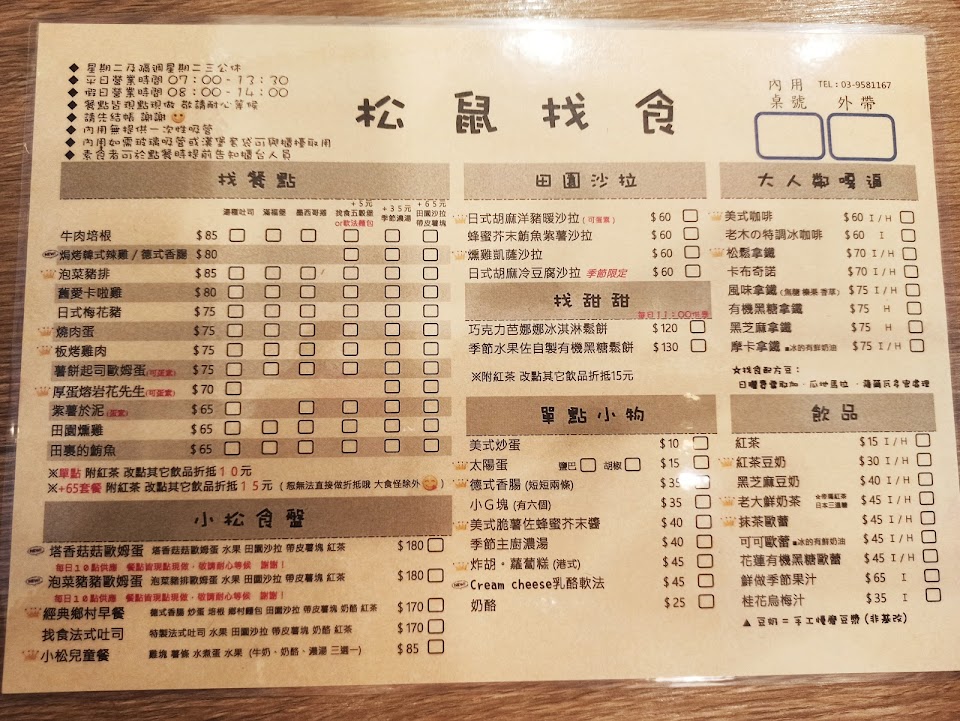 ◆ 星期二及隔週星期二三公休
◆ 平日營業時間 07：00-13：30
◆ 假日營業時間 08：00-14：00
◆ 餐點皆現點現做 敬請耐心等候
◆ 請先結帳 謝謝
◆ 內用無提供一次性吸管
◆ 內用如需玻璃吸管或漢堡套袋可與櫃檯取用
◆ 素食者可於點餐時提前告知櫃台人員
松鼠找食
內用 TEL：03-9581167
桌號 外帶
找餐點
濃穗吐司 滿福堡 墨西哥捲 +5元 找食五穀堡 or軟法麵包 +35元 季節濃湯 +65元 田園沙拉 帶皮薯塊
牛肉培根 $85
NEW 焗烤韓式辣雞/德式香腸 $80
泡菜豬排 $85
舊愛卡啦雞 $80
日式梅花豬 $75
燒肉蛋 $75
板烤雞肉 $75
薯餅起司歐姆蛋(可蛋素) $75
厚蛋熔岩花先生(可蛋素) $70
紫薯於泥(蛋素) $65
田園燻雞 $65
田裏的鮪魚 $65
※單點 附紅茶 改點其它飲品折抵10元
※+65套餐 附紅茶 改點其它飲品折抵15元 (恕無法直接做折抵哦 大食怪除外)
小松食盤
NEW 塔香菇菇歐姆蛋 塔香菇菇歐姆蛋 水果 田園沙拉 帶皮薯塊 紅茶 $180
每日10點供應 餐點皆現點現做，敬請耐心等候 謝謝！
NEW 泡菜豬豬歐姆蛋 泡菜豬排歐姆蛋 水果 田園沙拉 帶皮薯塊 紅茶 $180
每日10點供應 餐點皆現點現做，敬請耐心等候 謝謝！
經典鄉村早餐 德式香腸 炒蛋 培根 鄉村麵包 田園沙拉 帶皮薯塊 奶酪 紅茶 $170
找食法式吐司 特製法式吐司 水果 田園沙拉 帶皮薯塊 奶酪 紅茶 $170
小松兒童餐 雞塊 薯條 水煮蛋 水果 (牛奶、奶酪、濃湯 三選一) $85
田園沙拉
日式胡麻洋豬暖沙拉(可蛋素) $60
蜂蜜芥末鮪魚紫薯沙拉 $60
燻雞凱薩沙拉 $60
日式胡麻冷豆腐沙拉 季節限定 $60
找甜甜
每日11：00供應
巧克力芭娜娜冰淇淋鬆餅 $120
季節水果佐自製有機黑糖鬆餅 $130
※附紅茶 改點其它飲品折抵15元
單點小物
美式炒蛋 $10
太陽蛋 鹽巴 胡椒 $15
德式香腸 (短短兩條) $35
小G塊 (有六個) $35
美式脆薯佐蜂蜜芥末醬 $40
季節主廚濃湯 $40
炸胡‧蘿蔔糕 (港式) $45
NEW Cream cheese乳酪軟法 $45
奶酪 $25
大人幫嘎逼
美式咖啡 $60 I/H
老木の特調冰咖啡 $60 I
松鬆拿鐵 $70 I/H
卡布奇諾 $70 I/H
風味拿鐵 (焦糖 榛果 香草) $75 I/H
有機黑糖拿鐵 $75 H
黑芝麻拿鐵 $75 H
摩卡拿鐵 ■冰的有鮮奶油 $75 I/H
☆找食配方豆：
飲品
紅茶 $15 I/H
紅茶豆奶 $30 I/H
黑芝麻豆奶 $40 I/H
老大鮮奶茶 ☆帝爾紅茶 日本三溫糖 $45 I/H
抹茶歐蕾 $45 I/H
可可歐蕾 ■冰的有鮮奶油 $45 I/H
花蓮有機黑糖歐蕾 $45 I/H
鮮做季節果汁 $65 I
桂花烏梅汁 $35 I
▲ 豆奶 = 手工慢磨豆漿 (非基改)